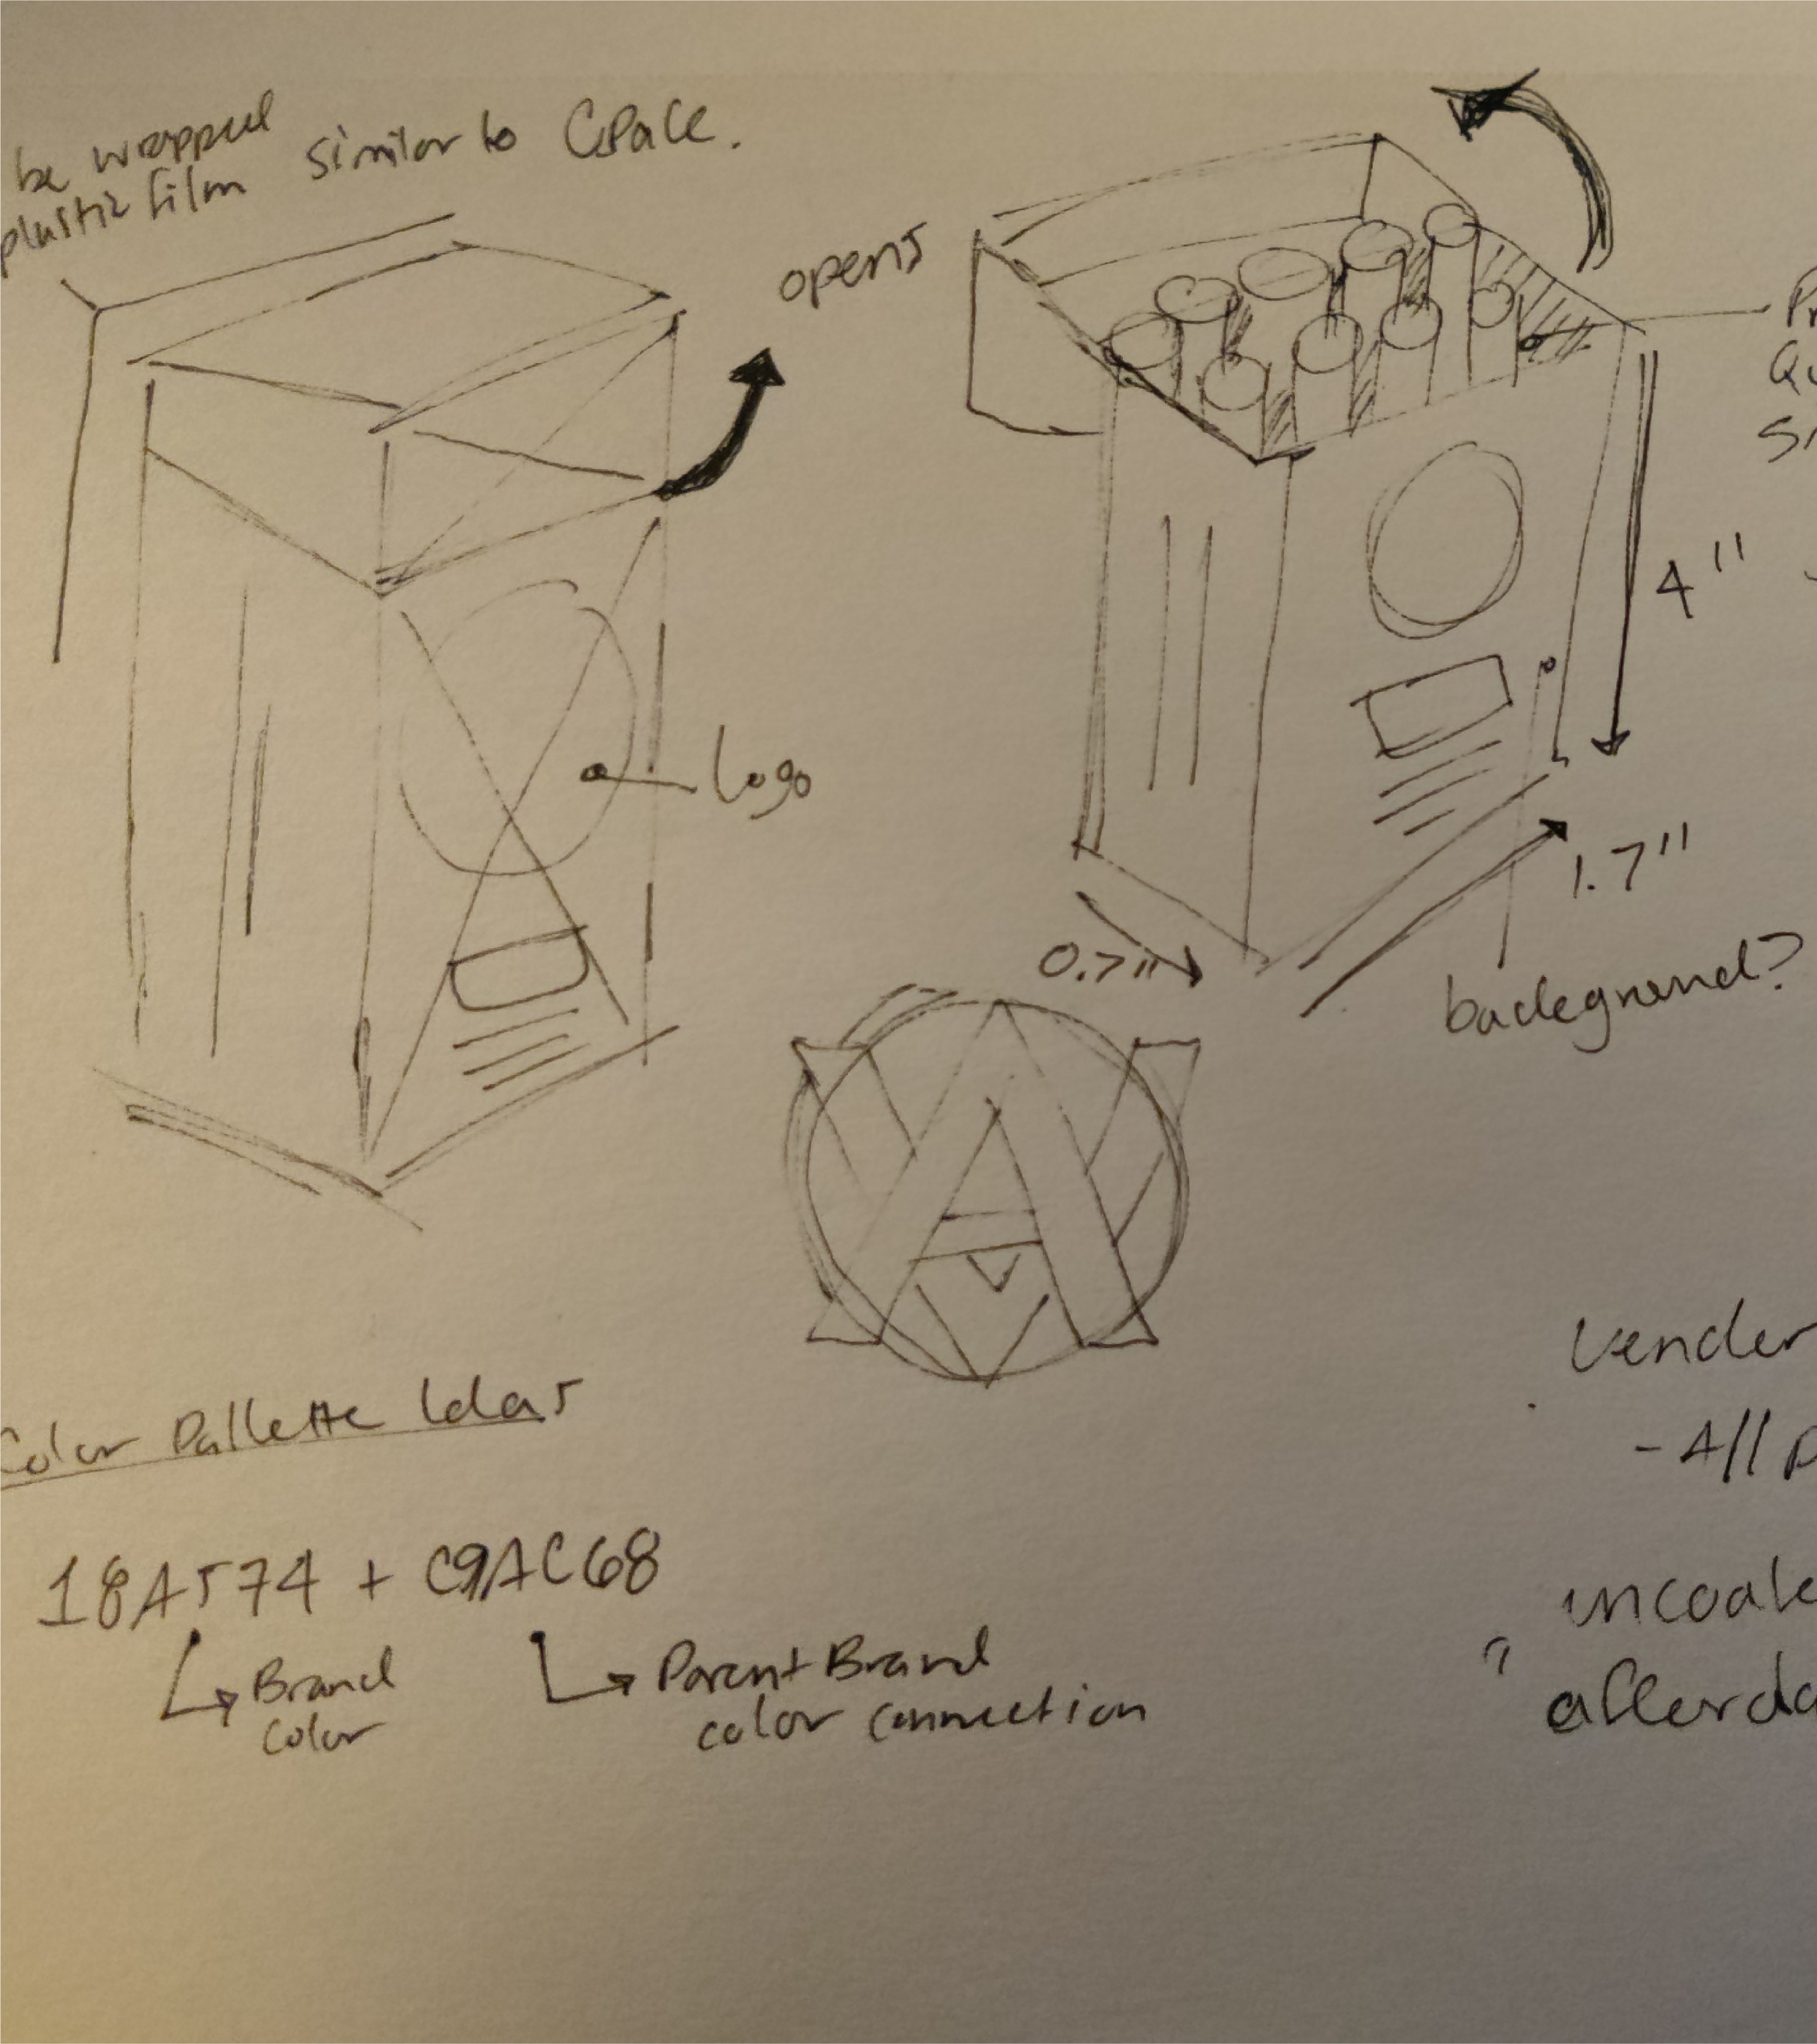 be wrapped
plastic film similar to CPack.
opens
Logo
4"
1.7"
0.7"
background?
Color Pallette Ideas
18A574 + C9AC68
Brand
color
Parent Brand
color connection
Vender
- All P